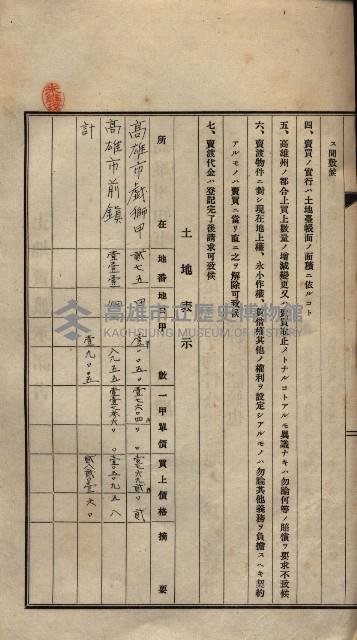 ス間敷候
四、賣買ノ實行ハ土地臺帳面ノ面積ニ依ルコト
五、高雄州ノ都合上買上數量ノ增減變更又ハ賣買取止メトナルコトアルモ異議ナキハ勿論何等ノ賠償ヲ要求不致候
六、賣渡物件ニ對シ現在地上權、永小作權、賃借權其他ノ權利ヲ設定シアルモノハ勿論其他義務ヲ負擔スヘキ契約
アルモノハ賣買ニ當リ直ニ之ヲ解除可致候
七、賣渡代金ハ登記完了後請求可致候
土地表示
所在 地番 地目 甲數 一甲單價 買上價格 摘要
高雄市戲獅甲 貳七五
高雄市前鎮 壹壹壹
計 壹九〇〇五
高雄市立歷史博物館
KAOHSIUNG MUSEUM OF HISTORY